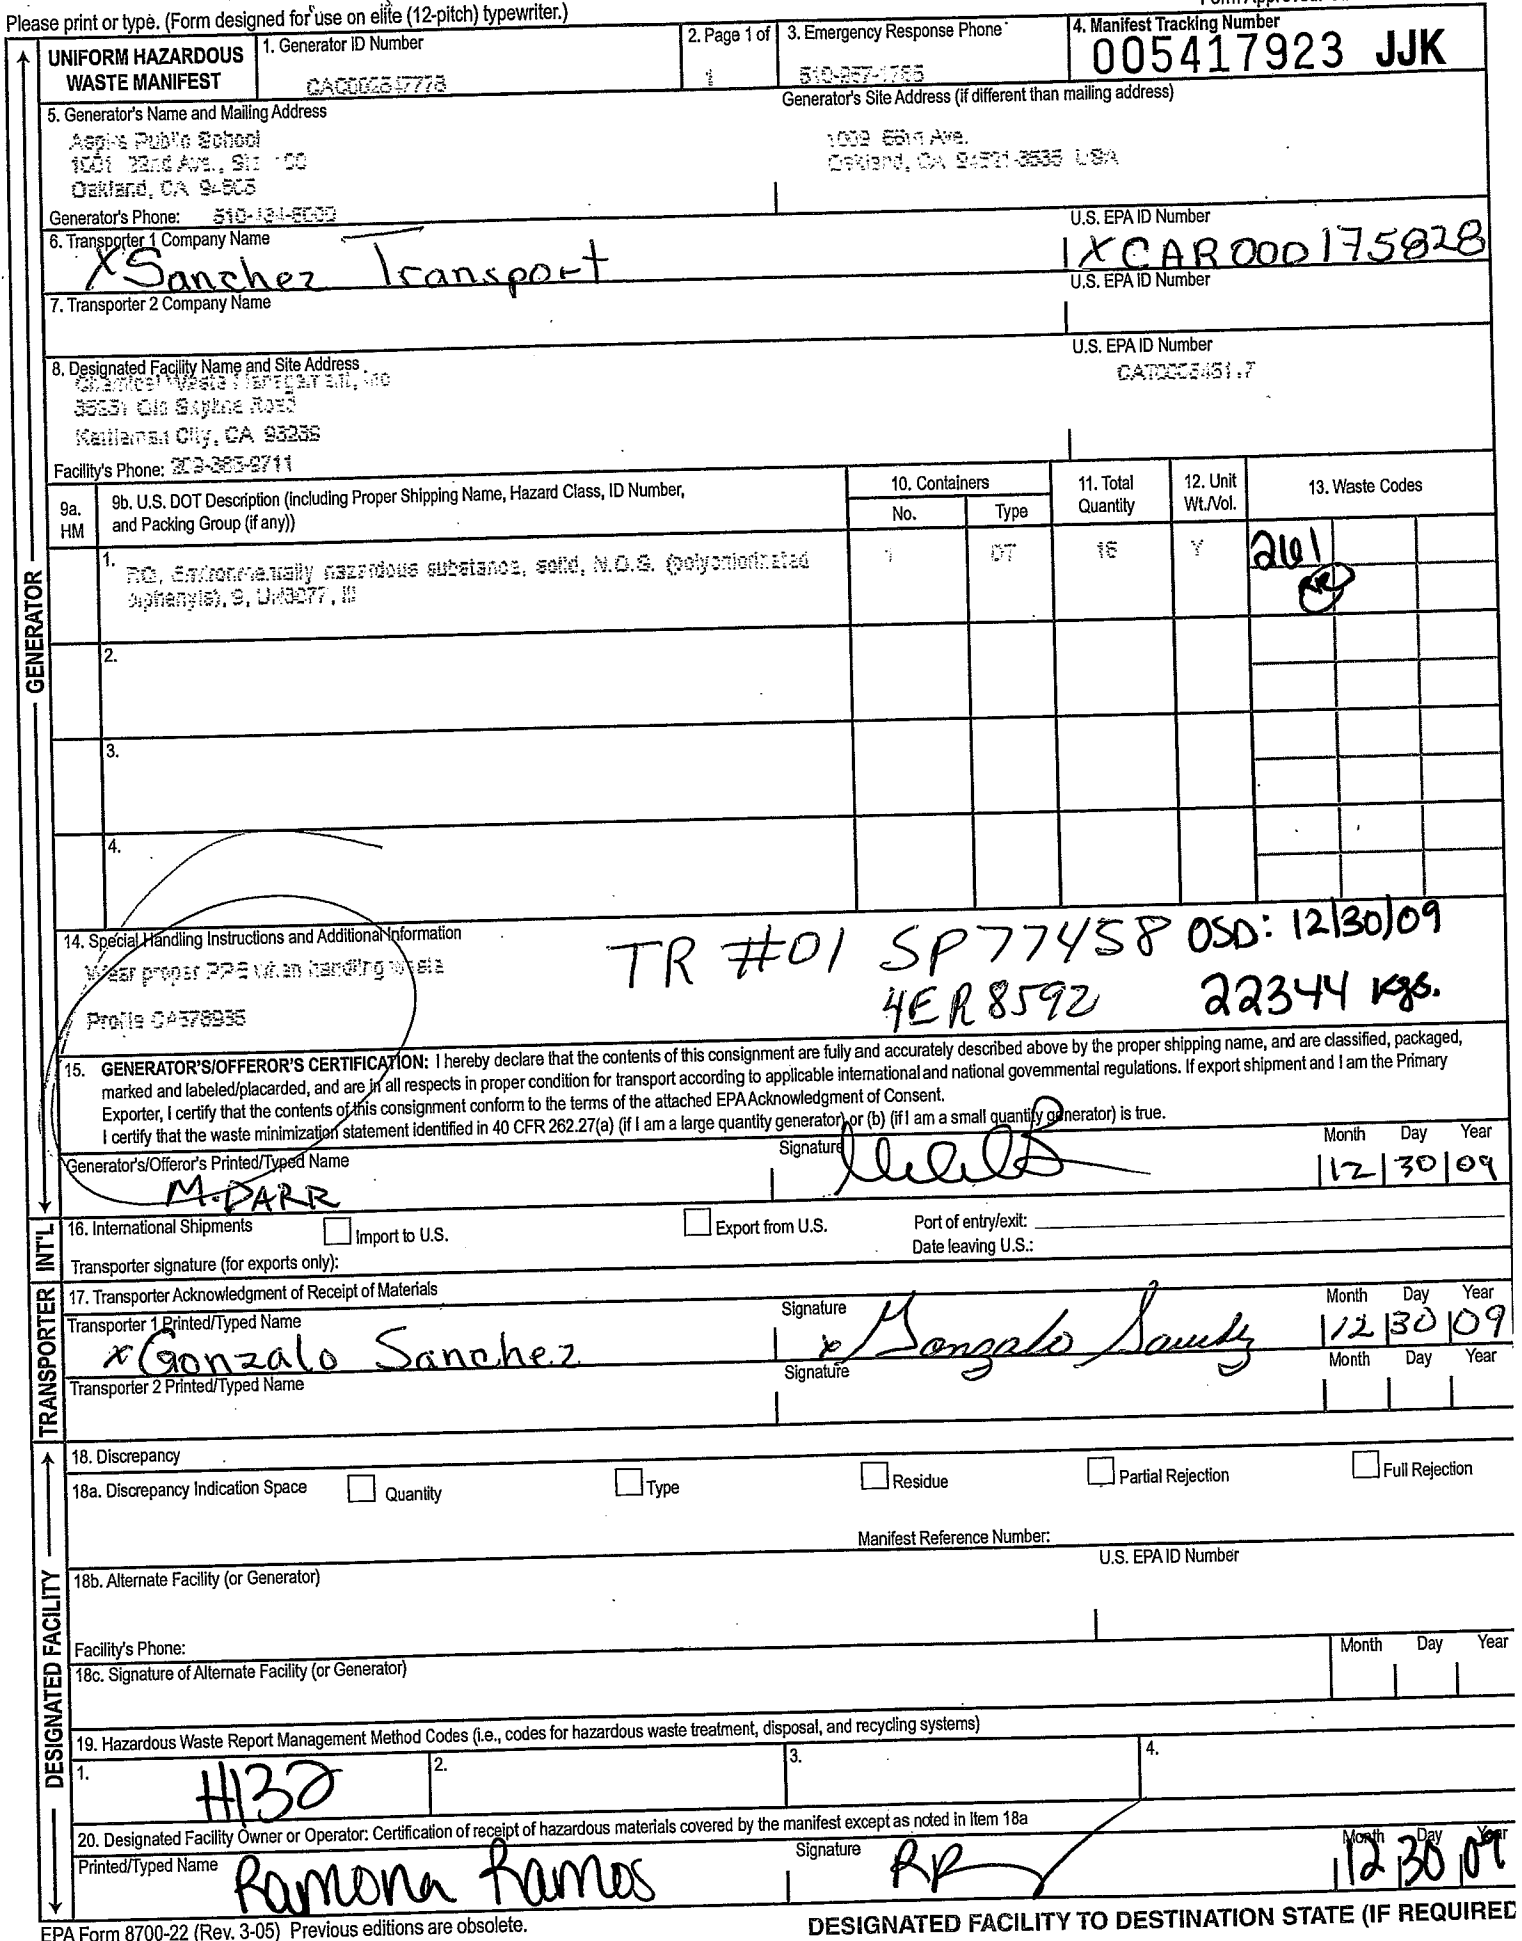 Please print or type. (Form designed for use on elite (12-pitch) typewriter.)
UNIFORM HAZARDOUS WASTE MANIFEST
1. Generator ID Number
2. Page 1 of
1
3. Emergency Response Phone
4. Manifest Tracking Number
005417923 JJK
5. Generator's Name and Mailing Address
Generator's Site Address (if different than mailing address)
Public School
Oakland, CA
Oakland, CA USA
Generator's Phone:
6. Transporter 1 Company Name
U.S. EPA ID Number
X Sanchez Transport
X CAR000175828
7. Transporter 2 Company Name
U.S. EPA ID Number
8. Designated Facility Name and Site Address
U.S. EPA ID Number
City, CA 93239
Facility's Phone:
9a. HM
9b. U.S. DOT Description (including Proper Shipping Name, Hazard Class, ID Number, and Packing Group (if any))
10. Containers
No.
Type
11. Total Quantity
12. Unit Wt./Vol.
13. Waste Codes
1.
RQ, Environmentally hazardous substance, solid, N.O.S. (polychlorinated
biphenyls), 9, UN3077, III
1
Y
261
RR
2.
3.
4.
14. Special Handling Instructions and Additional Information
Wear proper PPE when handling waste
Profile
TR #01 SP77458 OSD: 12/30/09
4ER8592 22344 kgs.
15. GENERATOR'S/OFFEROR'S CERTIFICATION: I hereby declare that the contents of this consignment are fully and accurately described above by the proper shipping name, and are classified, packaged,
marked and labeled/placarded, and are in all respects in proper condition for transport according to applicable international and national governmental regulations. If export shipment and I am the Primary
Exporter, I certify that the contents of this consignment conform to the terms of the attached EPA Acknowledgment of Consent.
I certify that the waste minimization statement identified in 40 CFR 262.27(a) (if I am a large quantity generator) or (b) (if I am a small quantity generator) is true.
Generator's/Offeror's Printed/Typed Name
Signature
Month Day Year
M. DARR
12 30 09
16. International Shipments
Import to U.S.
Export from U.S.
Port of entry/exit:
Transporter signature (for exports only):
Date leaving U.S.:
17. Transporter Acknowledgment of Receipt of Materials
Transporter 1 Printed/Typed Name
Signature
Month Day Year
x Gonzalo Sanchez
x Gonzalo Sanchez
12 30 09
Transporter 2 Printed/Typed Name
Signature
Month Day Year
18. Discrepancy
18a. Discrepancy Indication Space
Quantity
Type
Residue
Partial Rejection
Full Rejection
Manifest Reference Number:
18b. Alternate Facility (or Generator)
U.S. EPA ID Number
Facility's Phone:
18c. Signature of Alternate Facility (or Generator)
Month Day Year
19. Hazardous Waste Report Management Method Codes (i.e., codes for hazardous waste treatment, disposal, and recycling systems)
1. H132
2.
3.
4.
20. Designated Facility Owner or Operator: Certification of receipt of hazardous materials covered by the manifest except as noted in Item 18a
Printed/Typed Name
Signature
Month Day Year
Ramona Ramos
RR
12 30 09
EPA Form 8700-22 (Rev. 3-05) Previous editions are obsolete.
DESIGNATED FACILITY TO DESTINATION STATE (IF REQUIRED
GENERATOR
INT'L
TRANSPORTER
DESIGNATED FACILITY